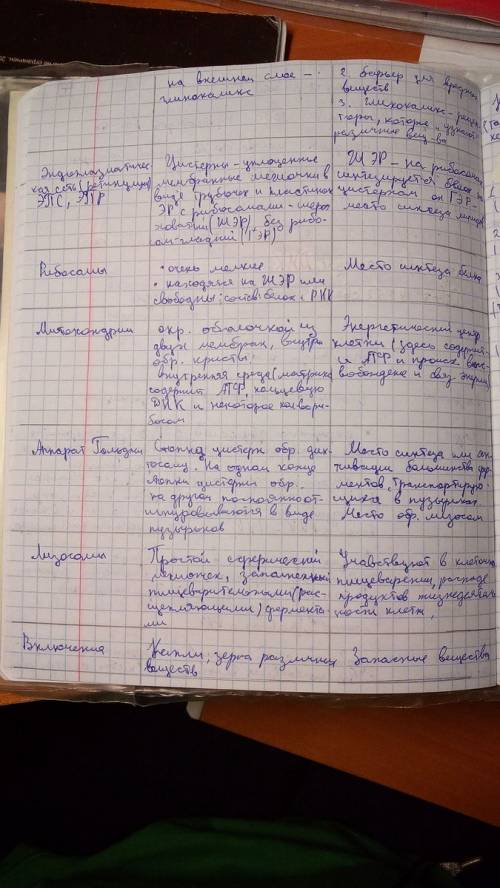 на внешнем слое -
гликокаликс
2. барьер для вредных
веществ
3. гликокаликс - рецеп
торы, которые
различные вещ-ва
Эндоплазматичес
кая сеть (ретикулум)
ЭПС, ЭПР
Цистерны - уплощенные
мембранные мешочки в
виде трубочек и пластинок
ЭР с рибосомами - шеро
ховатый (ШЭР) без рибо-
сом - гладкий (ГЭР)
ШЭР - на рибосомах
синтезируется белок
цистернам он ГЭР -
место синтеза липидов
Рибосомы
• очень мелкие
• находятся на ШЭР или
свободны: белок и РНК
Место синтеза белка
Митохондрии
окр. оболочкой из
двух мембран, внутри
обр. кристы
внутренняя среда (матрикс)
содержит АТФ, кольцевую
ДНК и некоторое колво ри-
босом
Энергетический центр
клетки (здесь содержит-
АТФ и происх.
Аппарат Гольджи
Стопка цистерн обр. дик-
тосому. На одном конце
стопки цистерны обр.
на другом постоянно от-
шнуровываются в виде
пузырьков
Место синтеза или
большинства фер
ментов, транспортирую
щихся в пузырьках.
Место обр. лизосом
Лизосомы
Простой сферический
мешочек, заполненный
пищеварительными (рас-
щепляющими) фермента-
ми
Учавствуют в клеточном
пищеварении, распаде
продуктов жизнедеятель
ности клетк.
Включения
Капли, зерна различных
веществ
Запасные вещества